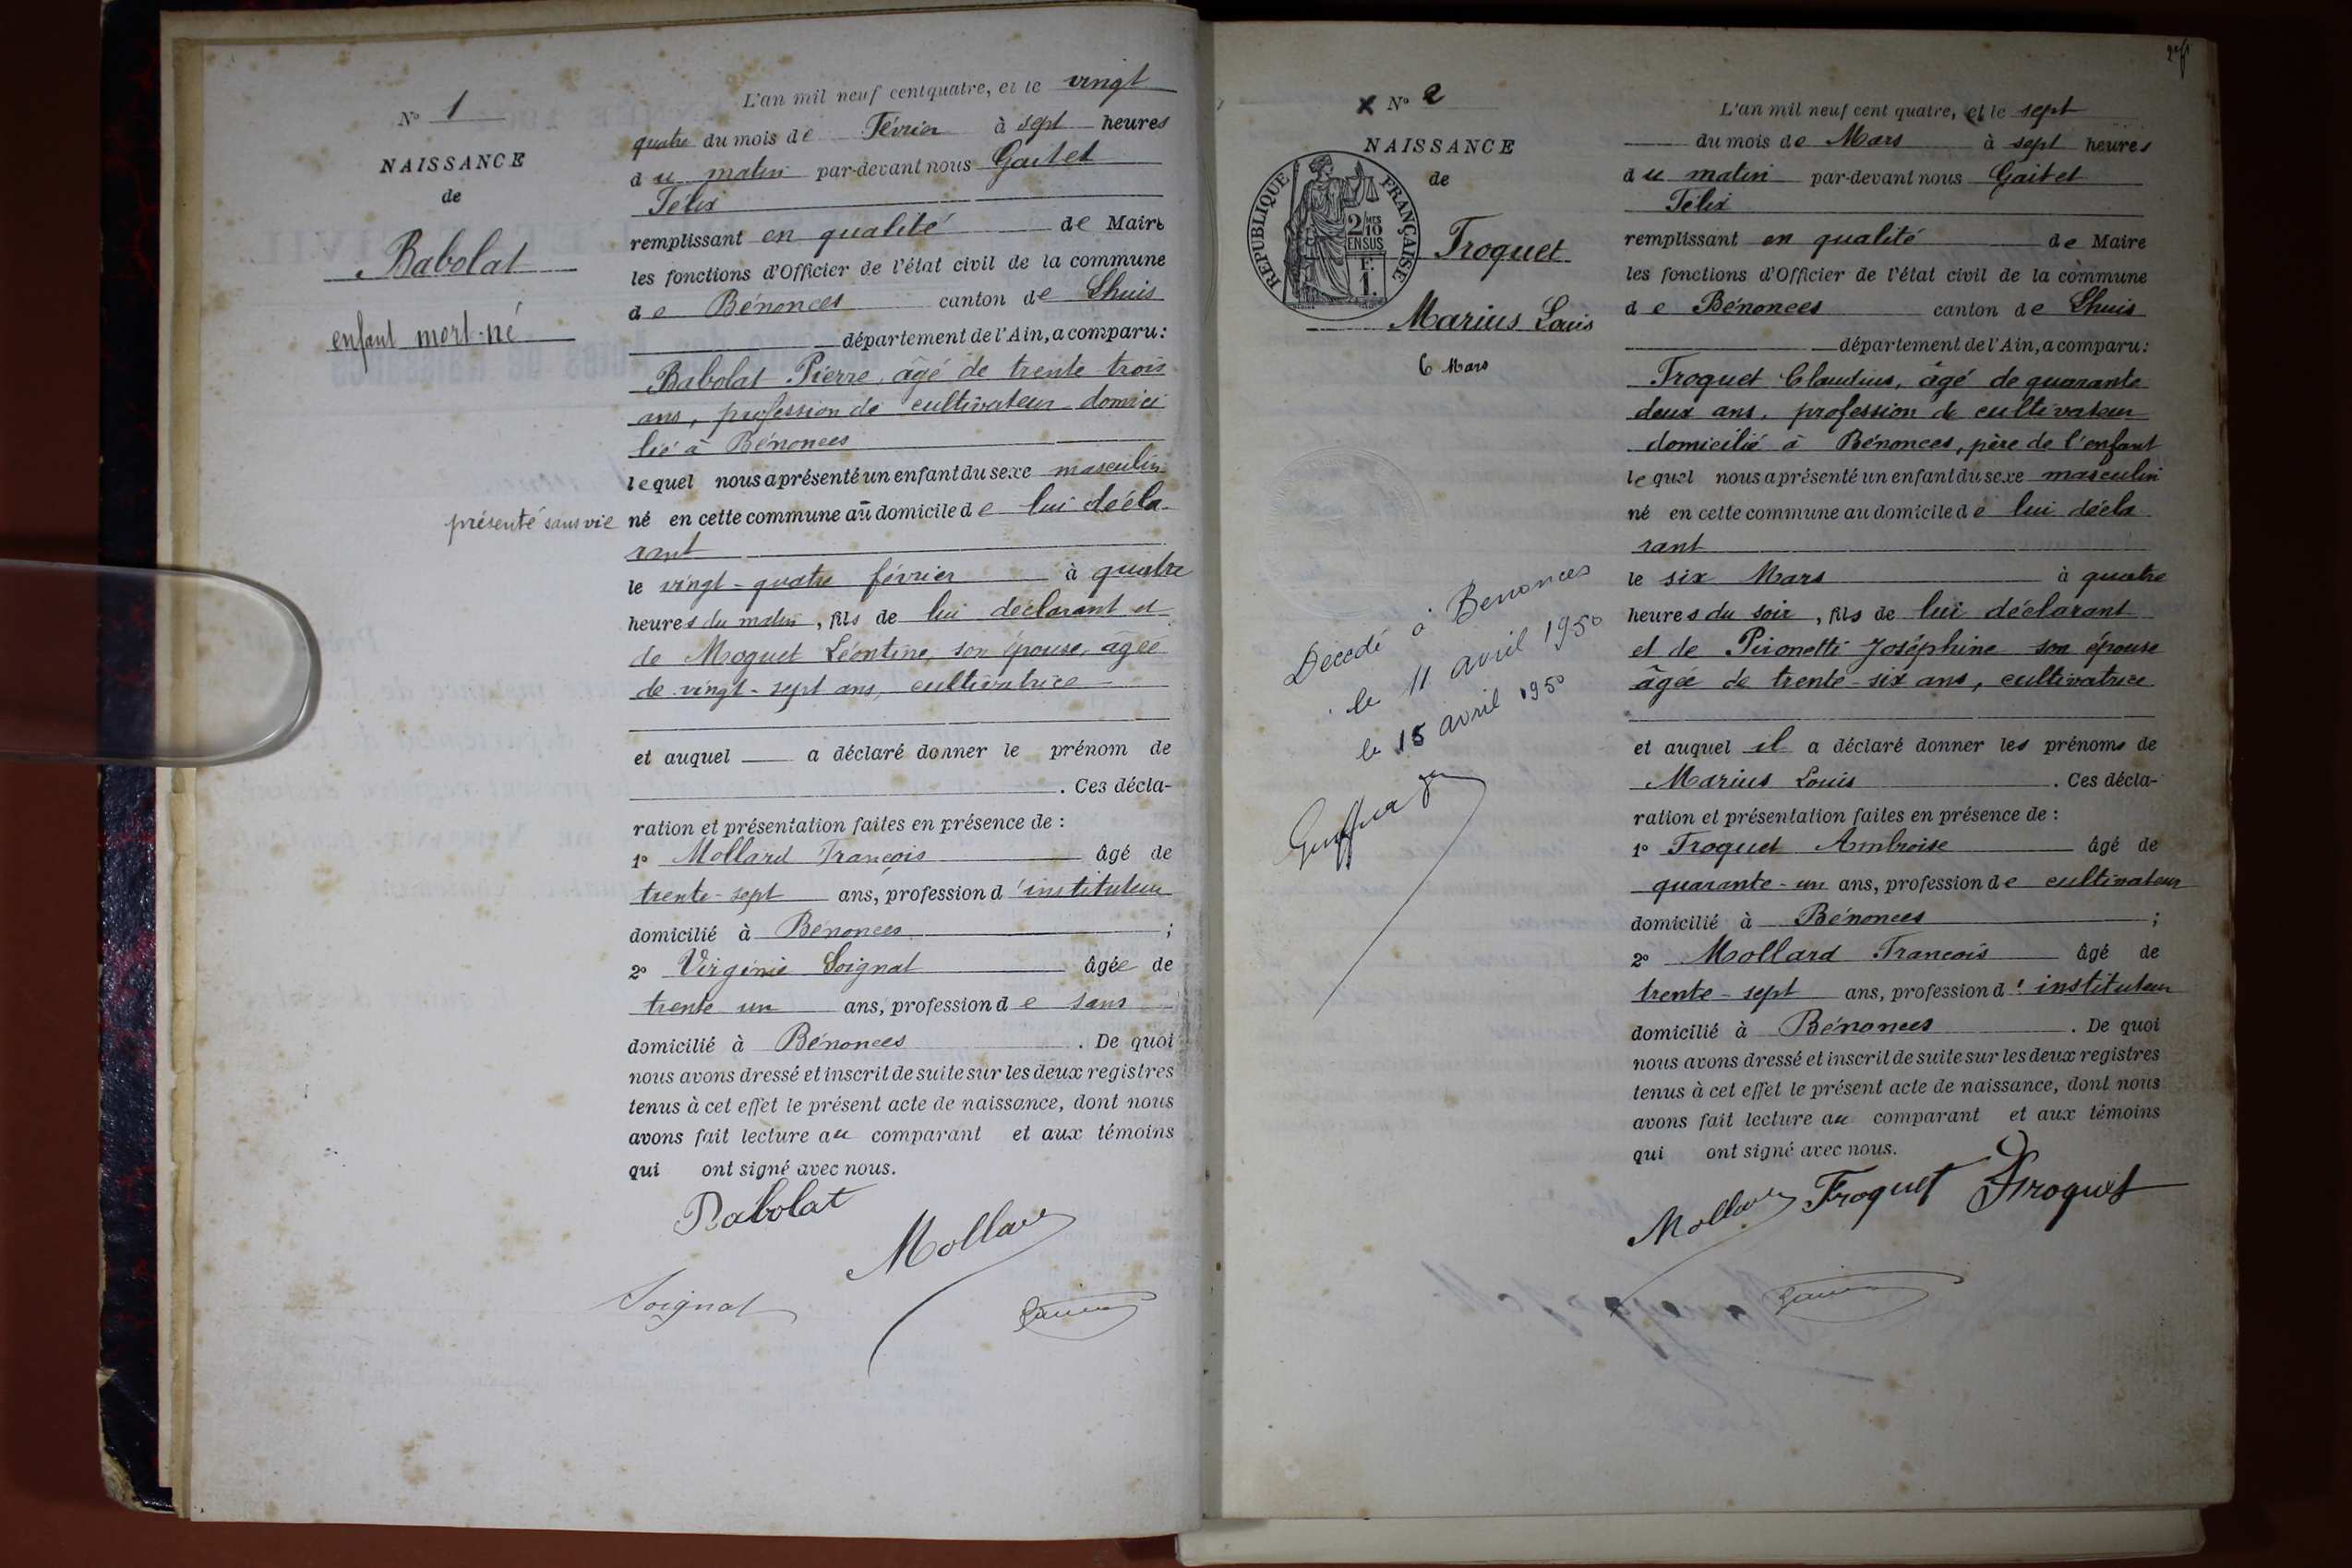 N° 1
NAISSANCE
de
Babolat
enfant mort-né
présenté sans vie
L'an mil neuf cent quatre, et le vingt
quatre du mois de Février à sept heures
du matin par-devant nous Gaitet
Félix
remplissant en qualité de Maire
les fonctions d'Officier de l'état civil de la commune
de Bénonces canton de Lhuis
département de l'Ain, a comparu:
Babolat Pierre, âgé de trente trois
ans, profession de cultivateur domici
lié à Bénonces
lequel nous a présenté un enfant du sexe masculin
né en cette commune au domicile de lui décla-
rant
le vingt-quatre février à quatre
heures du matin, fils de lui déclarant et
de Moquet Léontine, son épouse, âgée
de vingt-sept ans, cultivatrice
et auquel a déclaré donner le prénom de
. Ces décla-
ration et présentation faites en présence de :
1° Mollard François âgé de
trente-sept ans, profession d'instituteur
domicilié à Bénonces ;
2° Virginie Soignat âgée de
trente un ans, profession de sans
domicilié à Bénonces . De quoi
nous avons dressé et inscrit de suite sur les deux registres
tenus à cet effet le présent acte de naissance, dont nous
avons fait lecture au comparant et aux témoins
qui ont signé avec nous.
Babolat
Mollard
Soignat
N° 2
NAISSANCE
de
REPUBLIQUE FRANÇAISE
2/10 MES
EN SUS
1 F.
Troquet
Marius Louis
6 Mars
Décédé à Benonces
le 11 avril 1950
le 15 avril 1950
L'an mil neuf cent quatre, et le sept
du mois de Mars à sept heures
du matin par-devant nous Gaitet
Félix
remplissant en qualité de Maire
les fonctions d'Officier de l'état civil de la commune
de Bénonces canton de Lhuis
département de l'Ain, a comparu:
Troquet Claudius, âgé de quarante
deux ans, profession de cultivateur
domicilié à Bénonces, père de l'enfant
lequel nous a présenté un enfant du sexe masculin
né en cette commune au domicile de lui décla
rant
le six Mars à quatre
heures du soir, fils de lui déclarant
et de Pironetti Joséphine son épouse
âgée de trente-six ans, cultivatrice
et auquel il a déclaré donner les prénoms de
Marius Louis . Ces décla-
ration et présentation faites en présence de :
1° Troquet Ambroise âgé de
quarante-un ans, profession de cultivateur
domicilié à Bénonces ;
2° Mollard François âgé de
trente-sept ans, profession d'instituteur
domicilié à Bénonces . De quoi
nous avons dressé et inscrit de suite sur les deux registres
tenus à cet effet le présent acte de naissance, dont nous
avons fait lecture au comparant et aux témoins
qui ont signé avec nous.
Mollard Troquet Troquet